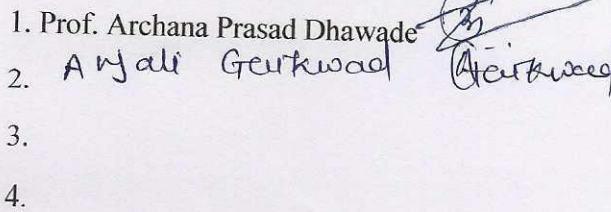 1. Prof. Archana Prasad Dhawade
2. Anjali Geikwad
3.
4.